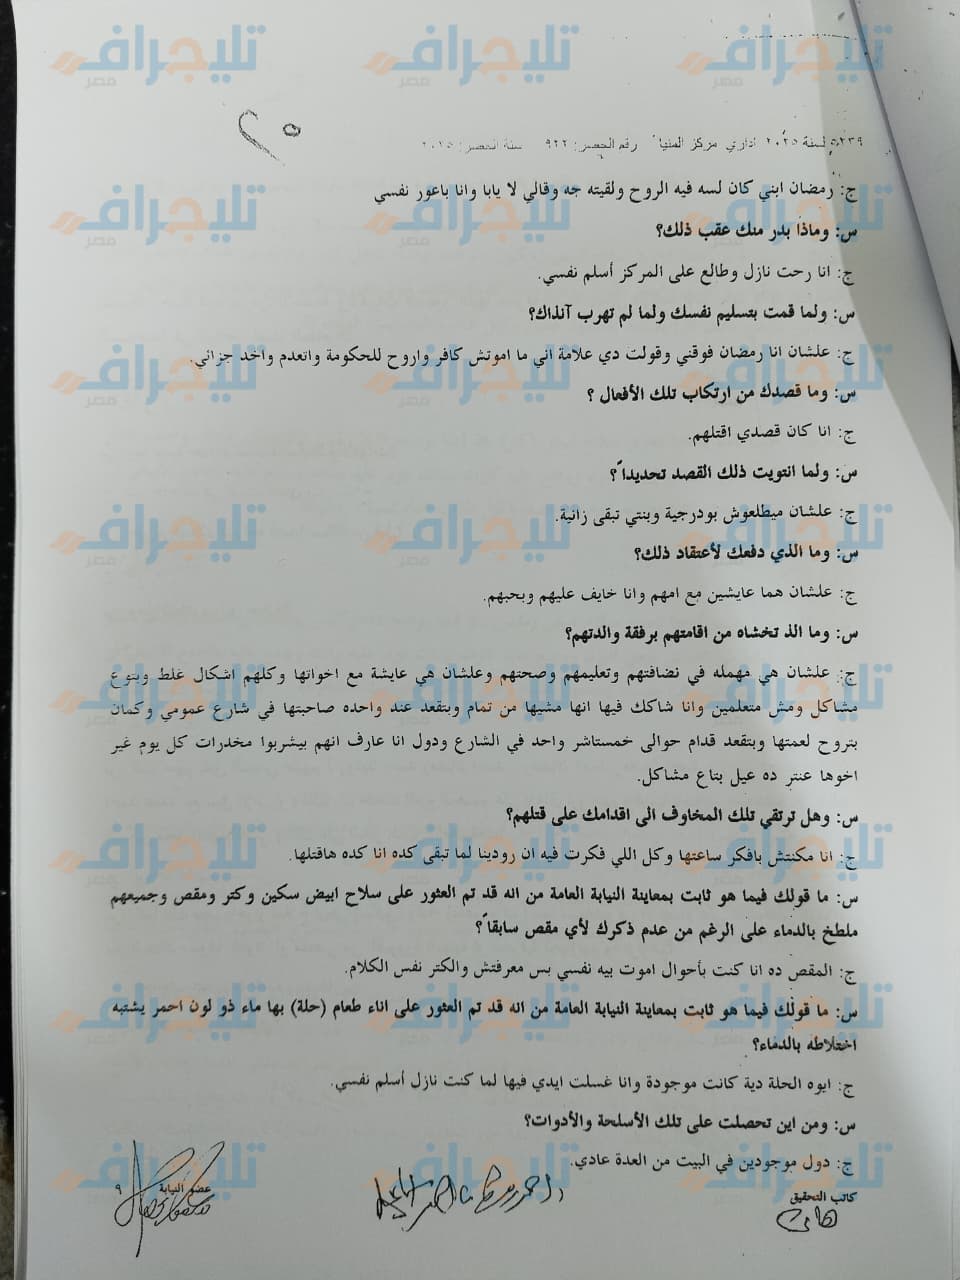 ٥٢٣٩ لسنة ٢٠٢٥ اداري مركز المنيا رقم الحصر: ٩٢٢ سنة الحصر: ٢٠٢٥
ج: رمضان ابني كان لسه فيه الروح ولقيته جه وقالي لا يابا وانا باعور نفسي
س: وماذا بدر منك عقب ذلك؟
ج: انا رحت نازل وطالع على المركز أسلم نفسي.
س: ولما قمت بتسليم نفسك ولما لم تهرب آنذاك؟
ج: علشان انا رمضان فوقني وقولت دي علامة اني ما اموتش كافر واروح للحكومة واتعدم واخد جزائي.
س: وما قصدك من ارتكاب تلك الأفعال ؟
ج: انا كان قصدي اقتلهم.
س: ولما انتويت ذلك القصد تحديداً ؟
ج: علشان ميطلعوش بودرجية وبنتي تبقى زانية.
س: وما الذي دفعك لأعتقاد ذلك؟
ج: علشان هما عايشين مع امهم وانا خايف عليهم وبحبهم.
س: وما الذ تخشاه من اقامتهم برفقة والدتهم؟
ج: علشان هي مهمله في نضافتهم وتعليمهم وصحتهم وعلشان هي عايشة مع اخواتها وكلهم اشكال غلط وبتوع
مشاكل ومش متعلمين وانا شاكك فيها انها مشيها من تمام وبتقعد عند واحده صاحبتها في شارع عمومي وكمان
بتروح لعمتها وبتقعد قدام حوالى خمستاشر واحد في الشارع ودول انا عارف انهم بيشربوا مخدرات كل يوم غير
اخوها عنتر ده عيل بتاع مشاكل.
س: وهل ترتقي تلك المخاوف الى اقدامك على قتلهم؟
ج: انا مكنتش بافكر ساعتها وكل اللي فكرت فيه ان رودينا لما تبقى كده انا كده هاقتلها.
س: ما قولك فيما هو ثابت بمعاينة النيابة العامة من انه قد تم العثور على سلاح ابيض سكين وكتر ومقص وجميعهم
ملطخ بالدماء على الرغم من عدم ذكرك لأي مقص سابقاً ؟
ج: المقص ده انا كنت بأحوال اموت بيه نفسي بس معرفتش والكتر نفس الكلام.
س: ما قولك فيما هو ثابت بمعاينة النيابة العامة من انه قد تم العثور على اناء طعام (حلة) بها ماء ذو لون احمر يشتبه
اختلاطه بالدماء؟
ج: ايوه الحلة دية كانت موجودة وانا غسلت ايدي فيها لما كنت نازل أسلم نفسي.
س: ومن اين تحصلت على تلك الأسلحة والأدوات؟
ج: دول موجودين في البيت من العدة عادي.
كاتب التحقيق
عضو النيابة
٩
تليجراف
مصر